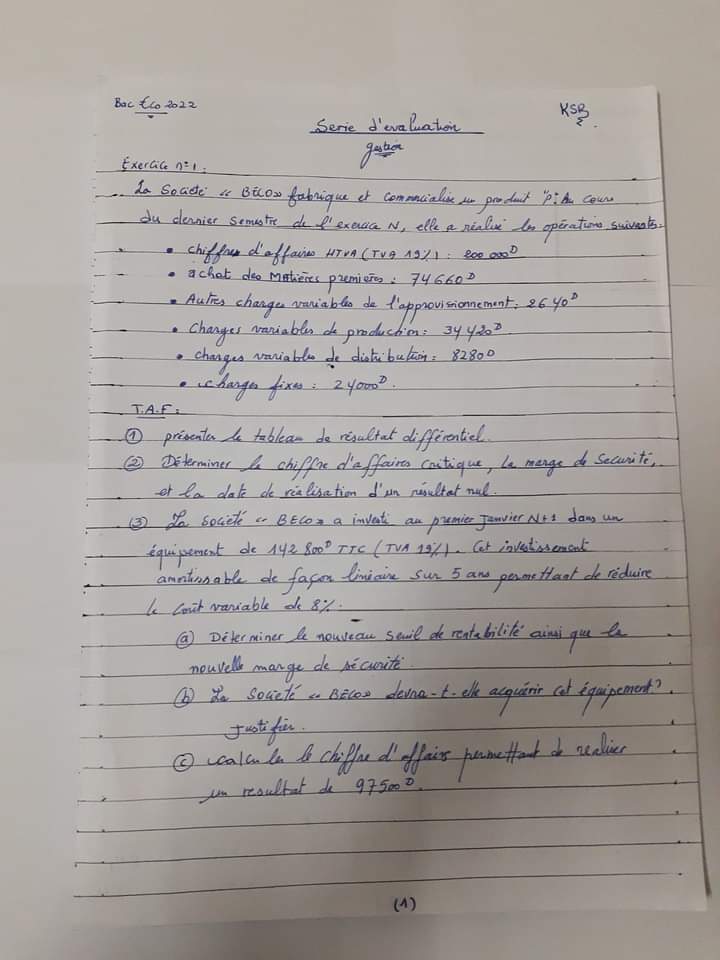 Bac Eco 2022
KSR
Serie d'evaluation
gestion
Exercice n°1:
La Société « BECO» fabrique et commercialise un produit "P": Au cours
du dernier semestre de l'exercice N, elle a réalisé les opérations suivantes:
• chiffres d'affaires HTVA (TVA 19%) : 200 000D
• achat des Matières premières : 74660D
• Autres charges variables de l'approvisionnement: 2640D
• Charges variables de production: 34420D
• charges variables de distribution: 8280D
• charges fixes : 24000D.
T.A.F:
① présenter le tableau de résultat différentiel.
② Déterminer le chiffre d'affaires critique, la marge de securité,
et la date de réalisation d'un résultat nul.
③ La Société « BECO» a investi au premier Janvier N+1 dans un
équipement de 142 800D TTC (TVA 19%). Cet investissement
amortissable de façon linéaire sur 5 ans permettant de réduire
le coût variable de 8%.
ⓐ Déterminer le nouveau seuil de rentabilité ainsi que la
nouvelle marge de sécurité.
ⓑ La Société « BECO» devra-t-elle acquérir cet équipement?
Justifier.
ⓒ calculer le chiffre d'affairs permettant de realiser
un resultat de 97500D.
(1)